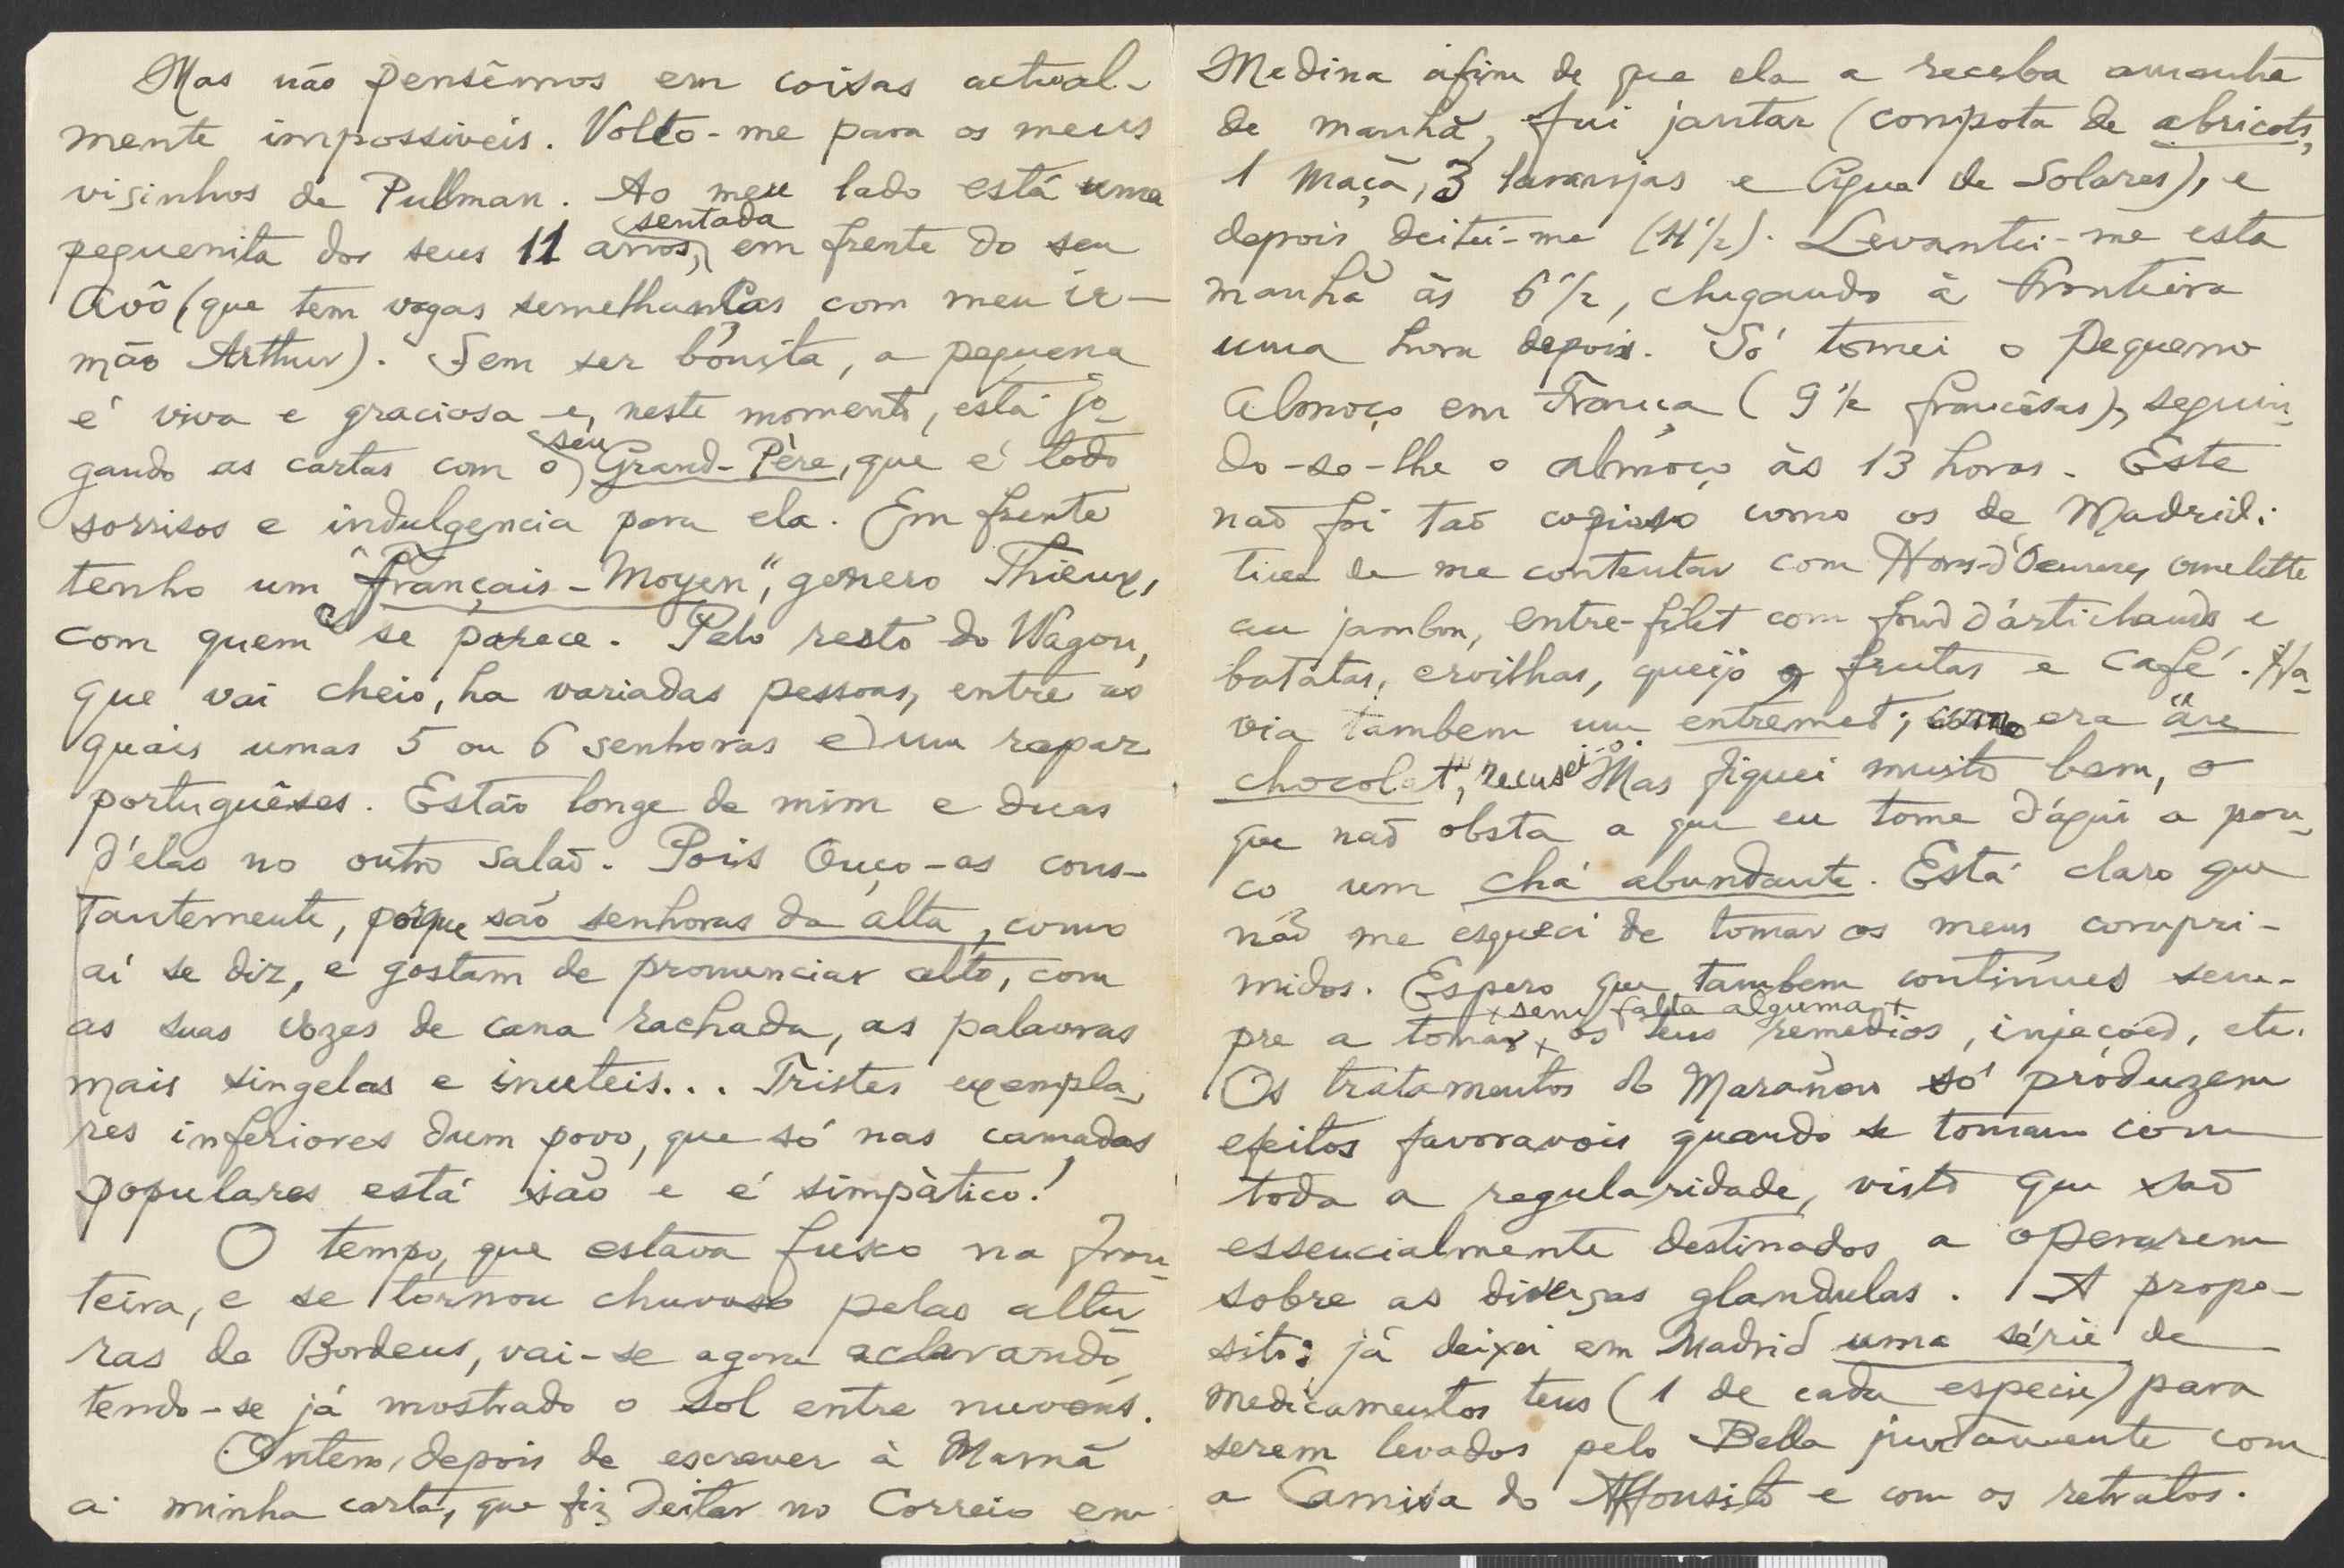 Mas não pensêmos em coisas actual-
mente impossiveis. Volto-me para os meus
visinhos de Pullman. Ao meu lado está uma
sentada
pequenita dos seus 11 anos, em frente do seu
Avô (que tem vagas semelhanças com meu ir-
mão Arthur). Sem ser bonita, a pequena
é viva e graciosa e, neste momento, está jo-
seu
gando as cartas com o Grand-Père, que é todo
sorrisos e indulgencia para ela. Em frente
tenho um "Français-Moyen", genero Thieux,
com quem se parece. Pelo resto do Wagon,
que vai cheio, ha variadas pessoas, entre as
quais umas 5 ou 6 senhoras e um rapaz
portuguêses. Estão longe de mim e duas
d'elas no outro salaõ. Pois Ouço-as cons-
tantemente, porque saõ senhoras da alta, como
aí se diz, e gostam de pronunciar alto, com
as suas vozes de cana rachada, as palavras
mais singelas e inuteis... Tristes exempla-
res inferiores dum povo, que só nas camadas
populares está são e é simpàtico!
O tempo, que estava fusco na fron-
teira, e se tornou chuvoso pelas altu-
ras de Bordeus, vai-se agora aclarando,
tendo-se já mostrado o sol entre nuvens.
Ontem, depois de escrever à Mamã
a minha carta, que fiz deitar no Correio em
Medina afim de que ela a receba amanhã
de manhã, fui jantar (compota de abricots,
1 maçã, 3 laranjas e Agua de Solares), e
depois deitei-me (11½). Levantei-me esta
manhã às 6½, chegando à fronteira
uma hora depois. Só tomei o Pequeno
Almoço em França (9½ francêsas), seguin-
do-se-lhe o almoço às 13 horas. Este
naõ foi taõ copioso como os de Madrid:
tive de me contentar com Hors-d'Oeuvres, omelette
au jambon, entre-filet com fond d'artichauds e
batatas, ervilhas, queijo, frutas e café. Ha-
via tambem um entremet; como era "au
chocolat", recusei-o. Mas fiquei muito bem, o
que naõ obsta a que eu tome d'aqui a pou-
co um chá abundante. Está claro que
não me esqueci de tomar os meus compri-
midos. Espero que tambem continues sem-
x sem falta alguma x
pre a tomar x os teus remedios, injeçoes, etc.
Os tratamentos do Marañon só produzem
efeitos favoraveis quando se tomam com
toda a regularidade, visto que saõ
essencialmente destinados a operarem
sobre as diversas glandulas. A propo-
sito: já deixei em Madrid uma série de
medicamentos teus (1 de cada especie) para
serem levados pelo Bella juntamente com
a Camisa do Affonsito e com os retratos.